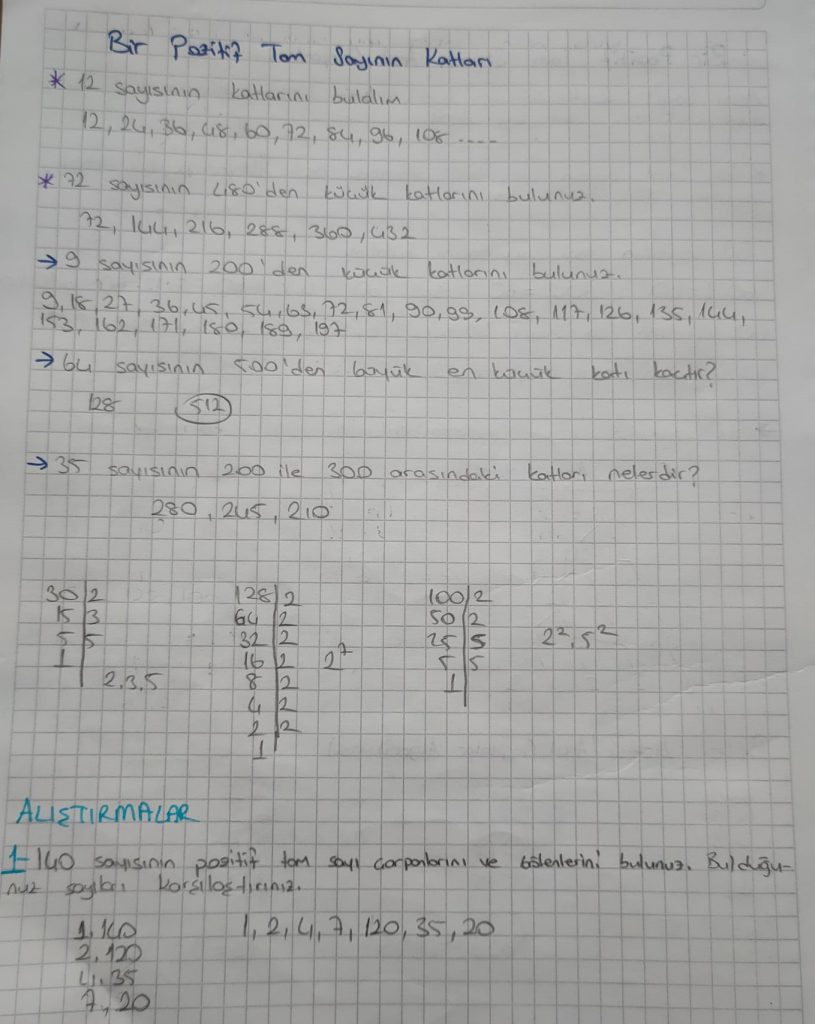 Bir Pozitif Tam Sayının Katları
* 12 sayısının katlarını bulalım
12, 24, 36, 48, 60, 72, 84, 96, 108 ....
* 72 sayısının 480'den küçük katlarını bulunuz.
72, 144, 216, 288, 360, 432
→ 9 sayısının 200'den küçük katlarını bulunuz.
9, 18, 27, 36, 45, 54, 63, 72, 81, 90, 99, 108, 117, 126, 135, 144,
153, 162, 171, 180, 189, 197
→ 64 sayısının 500'den büyük en küçük katı kaçtır?
128 512
→ 35 sayısının 200 ile 300 arasındaki katları nelerdir?
280, 245, 210
30|2 128|2 100|2
15|3 64|2 50|2
5|5 32|2 25|5 2².5²
1| 16|2 2⁷ 5|5
2.3.5 8|2 1|
4|2
2|2
1|
ALIŞTIRMALAR
1- 140 sayısının pozitif tam sayı çarpanlarını ve bölenlerini bulunuz. Bulduğu-
nuz sayıları karşılaştırınız.
1, 140 1, 2, 4, 7, 120, 35, 20
2, 120
4, 35
7, 20